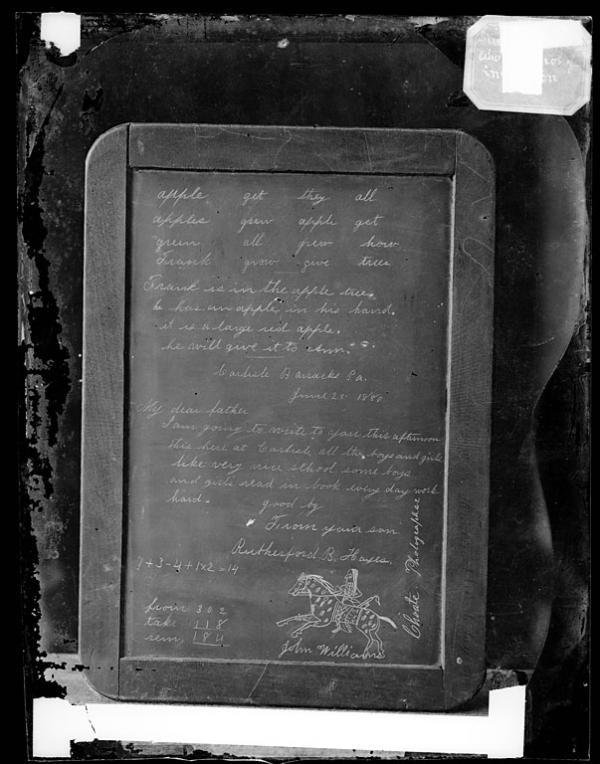 apple get they all
apples grew apple get
green all grew how
Frank grow give tree
Frank is in the apple tree.
he has an apple in his hand.
it is a large red apple.
he will give it to Ann.
Carlisle Barracks Pa.
June 25 1880
My dear father
I am going to write to you this afternoon
this here at Carlisle all the boys and girls
like very nice school some boys
and girls read in book every day work
hard. good by
From your son
Rutherford B. Hayes.
7+3-4+1x2=14
from 302
take 118
rem, 184
John Williams
Choate Photographer